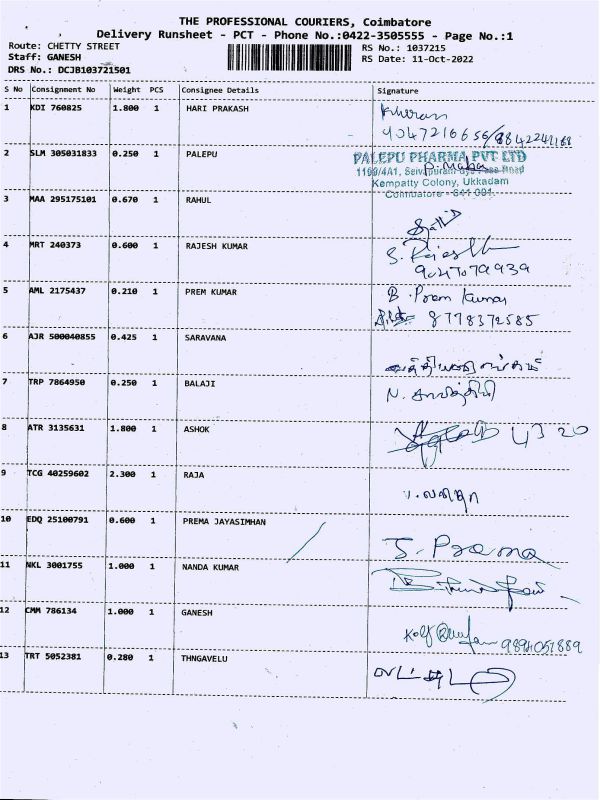 THE PROFESSIONAL COURIERS, Coimbatore
Delivery Runsheet - PCT - Phone No.:0422-3505555 - Page No.:1
Route: CHETTY STREET
Staff: GANESH
DRS No.: DCJB103721501
RS No.: 1037215
RS Date: 11-Oct-2022
S No Consignment No Weight PCS Consignee Details Signature
1 KDI 760825 1.800 1 HARI PRAKASH
9047216656/9842241168
2 SLM 305031833 0.250 1 PALEPU
PALEPU PHARMA PVT LTD
Kempatty Colony, Ukkadam
Coimbatore - 641 001.
3 MAA 295175101 0.670 1 RAHUL
4 MRT 240373 0.600 1 RAJESH KUMAR
S. Rajesh
9047079939
5 AML 2175437 0.210 1 PREM KUMAR
B. Prem Kumar
8778372585
6 AJR 500040855 0.425 1 SARAVANA
7 TRP 7864950 0.250 1 BALAJI
8 ATR 3135631 1.800 1 ASHOK
4320
9 TCG 40259602 2.300 1 RAJA
10 EDQ 25100791 0.600 1 PREMA JAYASIMHAN
J. Prema
11 NKL 3001755 1.000 1 NANDA KUMAR
12 CMM 786134 1.000 1 GANESH
9894051889
13 TRT 5052381 0.280 1 THNGAVELU